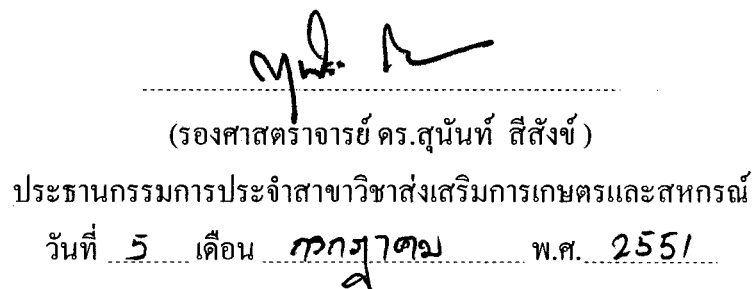 (รองศาสตราจารย์ ดร.สุนันท์ สีสังข์ )
ประธานกรรมการประจำสาขาวิชาส่งเสริมการเกษตรและสหกรณ์
วันที่ 5 เดือน กรกฎาคม พ.ศ. 2551